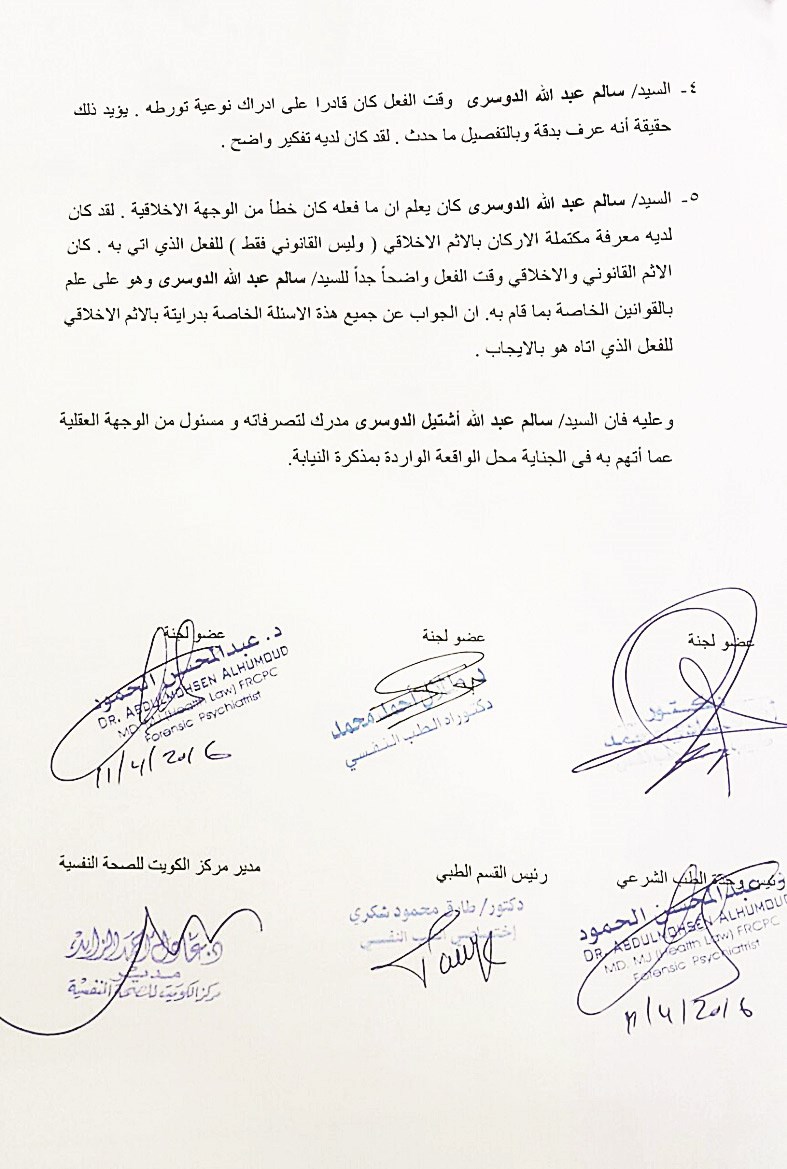 ٤- السيد/ سالم عبد الله الدوسرى وقت الفعل كان قادرا على ادراك نوعية تورطه . يؤيد ذلك
حقيقة أنه عرف بدقة وبالتفصيل ما حدث . لقد كان لديه تفكير واضح .
٥- السيد/ سالم عبد الله الدوسرى كان يعلم ان ما فعله كان خطأ من الوجهة الاخلاقية . لقد كان
لديه معرفة مكتملة الاركان بالاثم الاخلاقي ( وليس القانوني فقط ) للفعل الذي اتي به . كان
الاثم القانوني والاخلاقي وقت الفعل واضحاً جداً للسيد/ سالم عبد الله الدوسرى وهو على علم
بالقوانين الخاصة بما قام به. ان الجواب عن جميع هذة الاسئلة الخاصة بدرايتة بالاثم الاخلاقي
للفعل الذي اتاه هو بالايجاب .
وعليه فان السيد/ سالم عبد الله أشتيل الدوسرى مدرك لتصرفاته و مسئول من الوجهة العقلية
عما أتهم به فى الجناية محل الواقعة الواردة بمذكرة النيابة.
عضو لجنة
دكتور
عضو لجنة
أحمد محمد
دكتوراه الطب النفسي
عضو لجنة
د. عبدالمحسن الحمود
DR. ABDULMOHSEN ALHUMOUD
MD. MJ (Health Law) FRCPC
Forensic Psychiatrist
11/4/2016
رئيس وحدة الطب الشرعي
د. عبدالمحسن الحمود
DR. ABDULMOHSEN ALHUMOUD
MD. MJ (Health Law) FRCPC
Forensic Psychiatrist
11/4/2016
رئيس القسم الطبي
دكتور/ طارق محمود شكري
إختصاصي الطب النفسي
مدير مركز الكويت للصحة النفسية
د. عادل أحمد الزايد
مدير
مركز الكويت للصحة النفسية